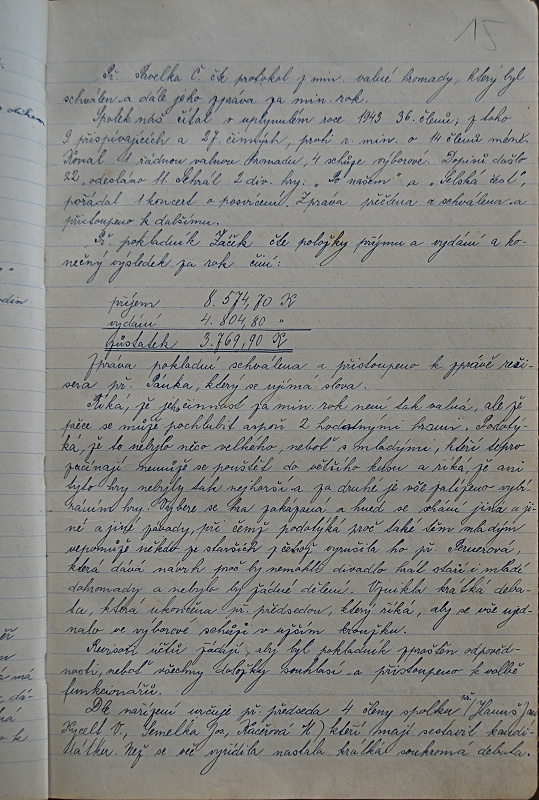 15
Př. Pavelka Č. čte protokol z min. valné hromady, který byl
schválen a dále jeho zpráva za min. rok.
Spolek náš čítal v uplynulém roce 1943 36. členů; z toho
9 přispívajících a 27. činných, proti r. min. o 14 členů méně.
Konal 1 řádnou valnou hromadu, 4 schůze výborové. Dopisů došlo
22, odesláno 11. Sehrál 2 div. hry: „Po našem" a „Selská čest",
pořádal 1 koncert o posvícení. Zpráva přečtena a schválena a
přistoupeno k dalšímu.
Př. pokladník Žáček čte položky příjmu a vydání a ko-
nečný výsledek za rok činí:
příjem 8.574,70 K
vydání 4.804,80 "
Zůstatek 3.769,90 K
Zpráva pokladní schválena a přistoupeno k zprávě reži-
séra př. Pánka, který se ujímá slova.
Říká, že jeho činnost za min. rok není tak valná, ale že
přece se může pochlubit aspoň 2 hodnotnými hrami. Podotý-
ká, že to nebylo něco velkého, neboť s mladými, kteří teprv
začínají nemůže se pouštět do většího kusu a říká, že ani
tyto hry nebyly tak nejhorší a za druhé je vše zatíženo vybí-
ráním hry. Vybere se hra zakázaná a hned se shání jiná a ji-
né a jiné závady, při čemž podotýká proč také těm mladým
nepomůže někdo ze starších z čehož vyrušila ho př.
která dává návrh proč by nemohli divadlo hrát staří i mladí
dohromady a nebylo by žádné dělení. Vznikla krátká deba-
ta, která ukončena př. předsedou, který říká, aby se vše ujed-
nalo ve výborové schůzi v užším kroužku.
Revisoři účtů žádají, aby byl pokladník zproštěn odpověd-
nosti, neboť všechny doložky souhlasí a přistoupeno k volbě
funkcionářů.
Dle nařízení určuje př. předseda 4 členy spolku př. (Hanuš Jan
Kycelt V., Semelka Jos., Kačerová M) kteří mají sestavit kandi-
dátku. Než se věc vyřídila nastala krátká soukromá debata.